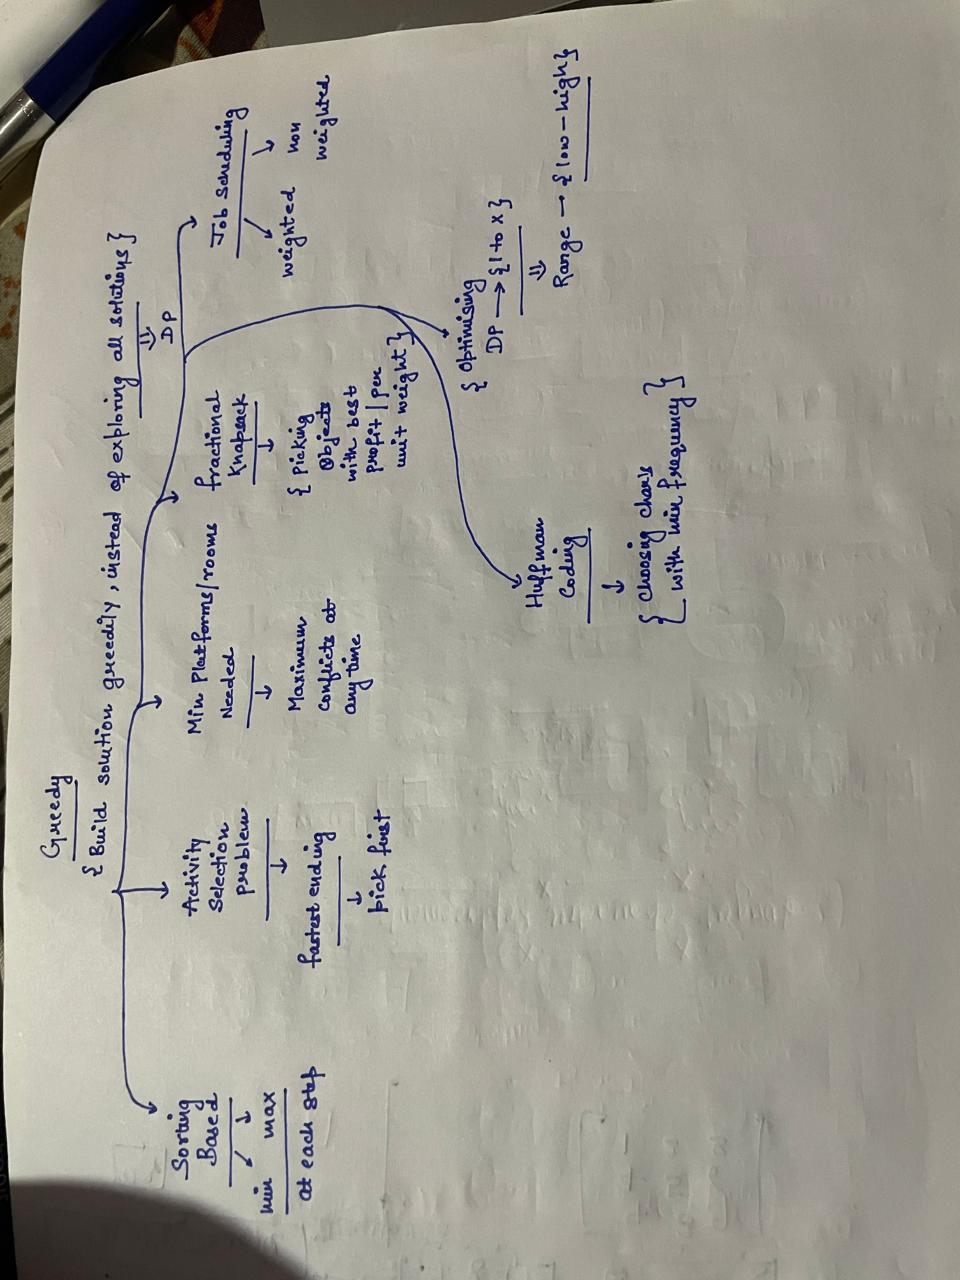 Greedy
{ Build solution greedily, instead of exploring all solutions }
⇓
DP
Sorting
Based
min max
at each step
Activity
Selection
problem
fastest ending
pick first
Min Platforms/rooms
Needed
Maximum
conflicts at
any time
fractional
Knapsack
{ Picking
Objects
with best
profit / per
unit weight }
Job Scheduling
weighted non
weighted
{ Optimising
DP → { 1 to x }
⇓
Range → { low - high }
Huffman
Coding
{ Choosing chars
with min frequency }